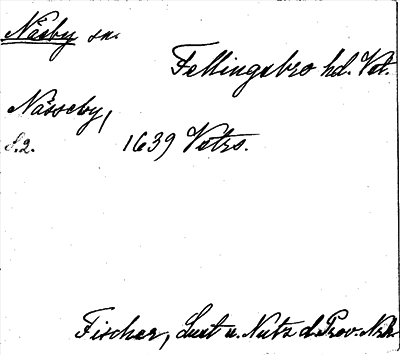 Näsby sn.
Fellingsbro hd. Vst.
Nässeby,
S. 2. 1639 Vetrs.
Fischer, Lust u. Nutz d. Prov. Nrk